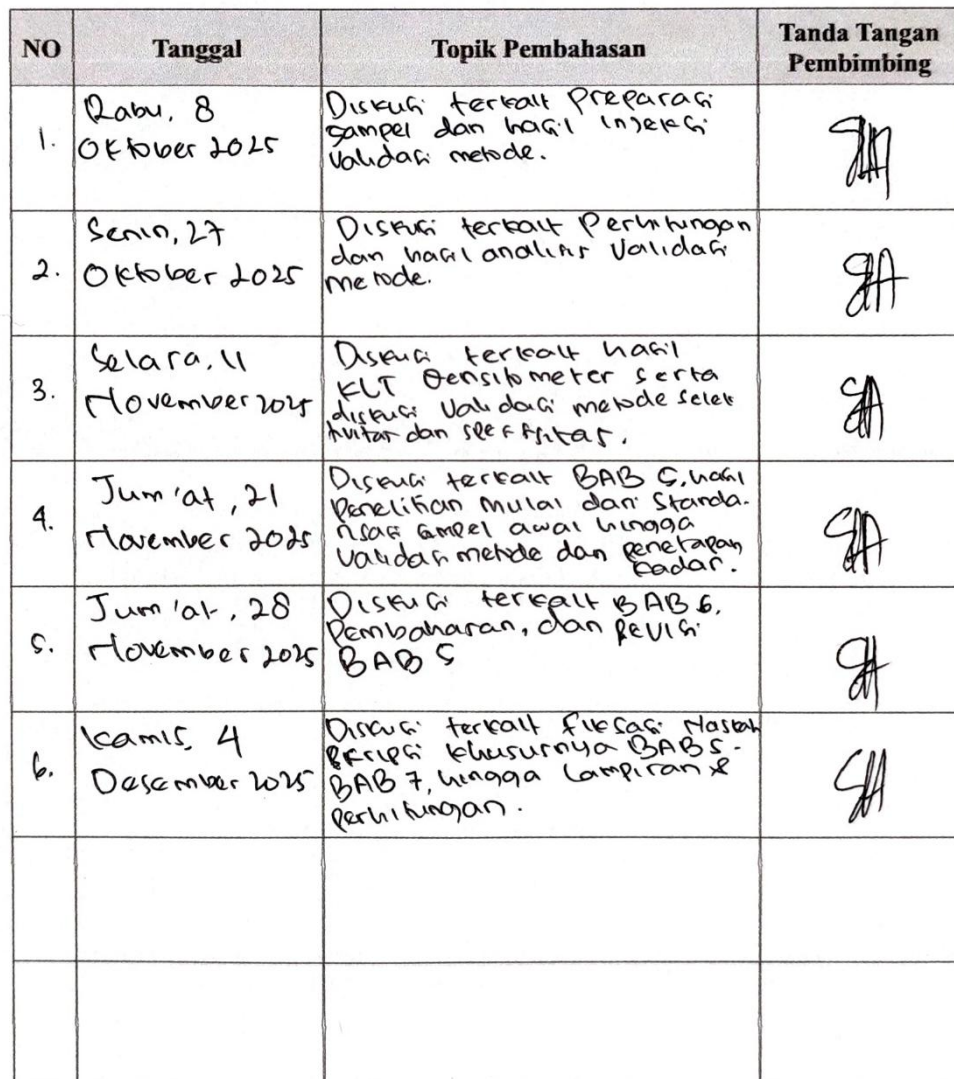 NO Tanggal Topik Pembahasan Tanda Tangan Pembimbing
1. Rabu, 8 Oktober 2025
Diskusi terkait Preparasi
sampel dan hasil injeksi
validasi metode.
2. Senin, 27 Oktober 2025
Diskusi terkait Perhitungan
dan hasil analisis Validasi
metode.
3. Selasa, 11 November 2025
Diskusi terkait hasil
KLT Densitometer serta
diskusi Validasi metode selek
tivitas dan spesifisitas.
4. Jum'at, 21 November 2025
Diskusi terkait BAB 5, hasil
Penelitian mulai dari Standa-
risasi sampel awal hingga
validasi metode dan penetapan
kadar.
5. Jum'at, 28 November 2025
Diskusi terkait BAB 6,
Pembahasan, dan Revisi
BAB 5
6. Kamis, 4 Desember 2025
Diskusi terkait fiksasi Naskah
skripsi khususnya BAB 5 -
BAB 7, hingga Lampiran &
perhitungan.